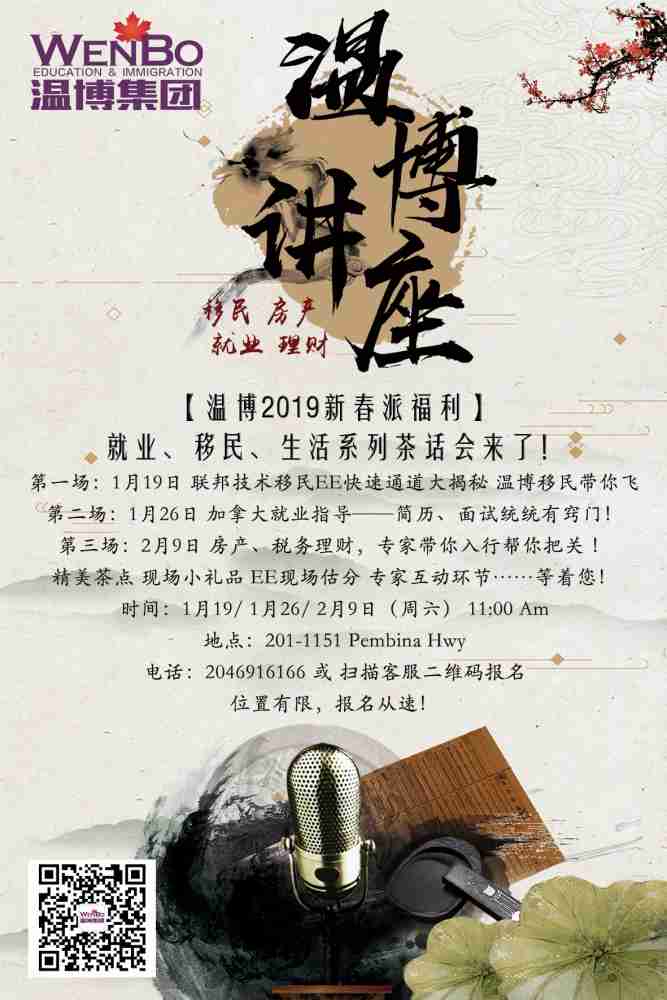 WENBO
EDUCATION & IMMIGRATION
温博集团
温博
讲座
移民 房产
就业 理财
【温博2019新春派福利】
就业、移民、生活系列茶话会来了!
第一场：1月19日 联邦技术移民EE快速通道大揭秘 温博移民带你飞
第二场：1月26日 加拿大就业指导——简历、面试统统有窍门!
第三场：2月9日 房产、税务理财，专家带你入行帮你把关！
精美茶点 现场小礼品 EE现场估分 专家互动环节……等着您!
时间：1月19/ 1月26/ 2月9日（周六） 11:00 Am
地点：201-1151 Pembina Hwy
电话：2046916166 或 扫描客服二维码报名
位置有限，报名从速!
WENBO